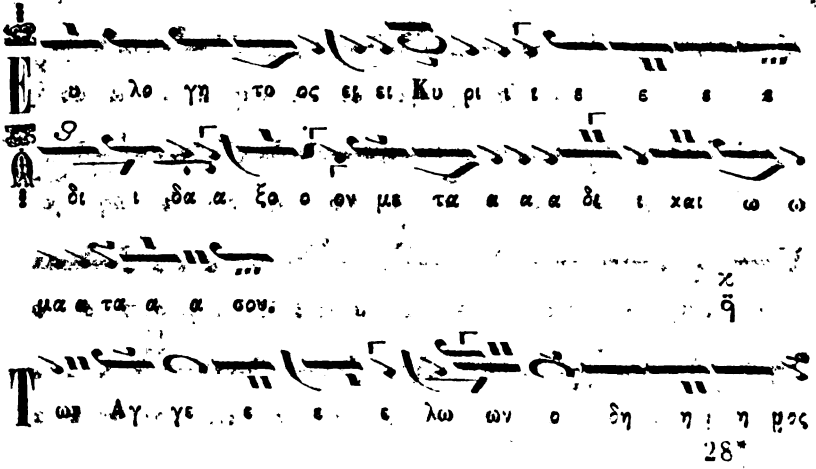 Ε υ λο γη το ος ει ει Κυ ρι ι ι ε ε ε ε
δι ι δα α ξο ο ον με τα α α α δι ι και ω ω
μα α τα α α σου.
Των Αγ γε ε ε ε λω ων ο δη η η μος
28*